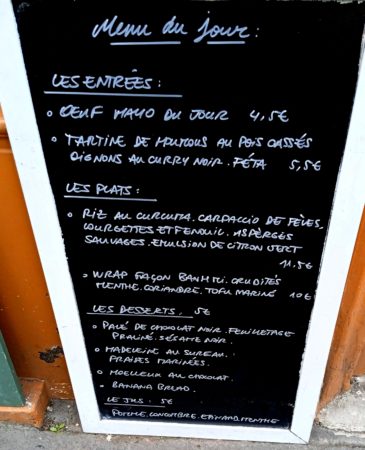 Menu du jour :
LES ENTRÉES :
• OEUF MAYO DU JOUR 4,5€
• TARTINE DE AU POIS CASSÉS
OIGNONS AU CURRY NOIR . FÉTA 5,5€
LES PLATS :
• RIZ AU CURCUMA . CARPACCIO DE FÈVES,
COURGETTES ET FENOUIL . ASPERGES
SAUVAGES . EMULSION DE CITRON VERT
11,5€
• WRAP FAÇON BANH MI . CRUDITÉS
MENTHE . CORIANDRE . TOFU MARINÉ 10€
LES DESSERTS . 5€
• PAVÉ DE CHOCOLAT NOIR . FEUILLETAGE
PRALINÉ . SÉSAME NOIR .
• MADELEINE AU SUREAU .
FRAISES MARINÉES .
• MOELLEUX AU CHOCOLAT .
• BANANA BREAD .
LE JUS : 5€
POMME, CONCOMBRE, MENTHE